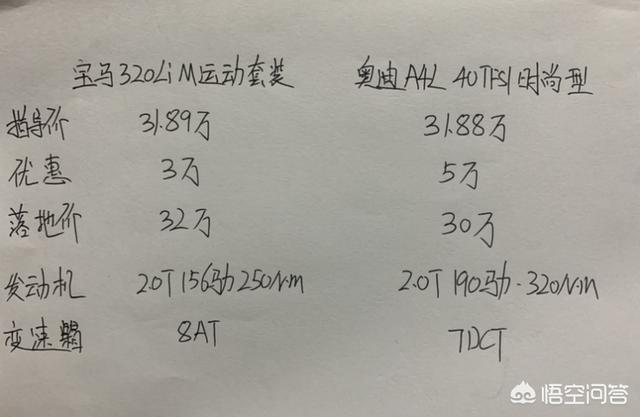 宝马320Li M运动套装 奥迪A4L 40TFSI时尚型
指导价 31.89万 31.88万
优惠 3万 5万
落地价 32万 30万
发动机 2.0T 156马力 250N·m 2.0T 190马力·320N·m
变速器 8AT 7DCT
悟空问答